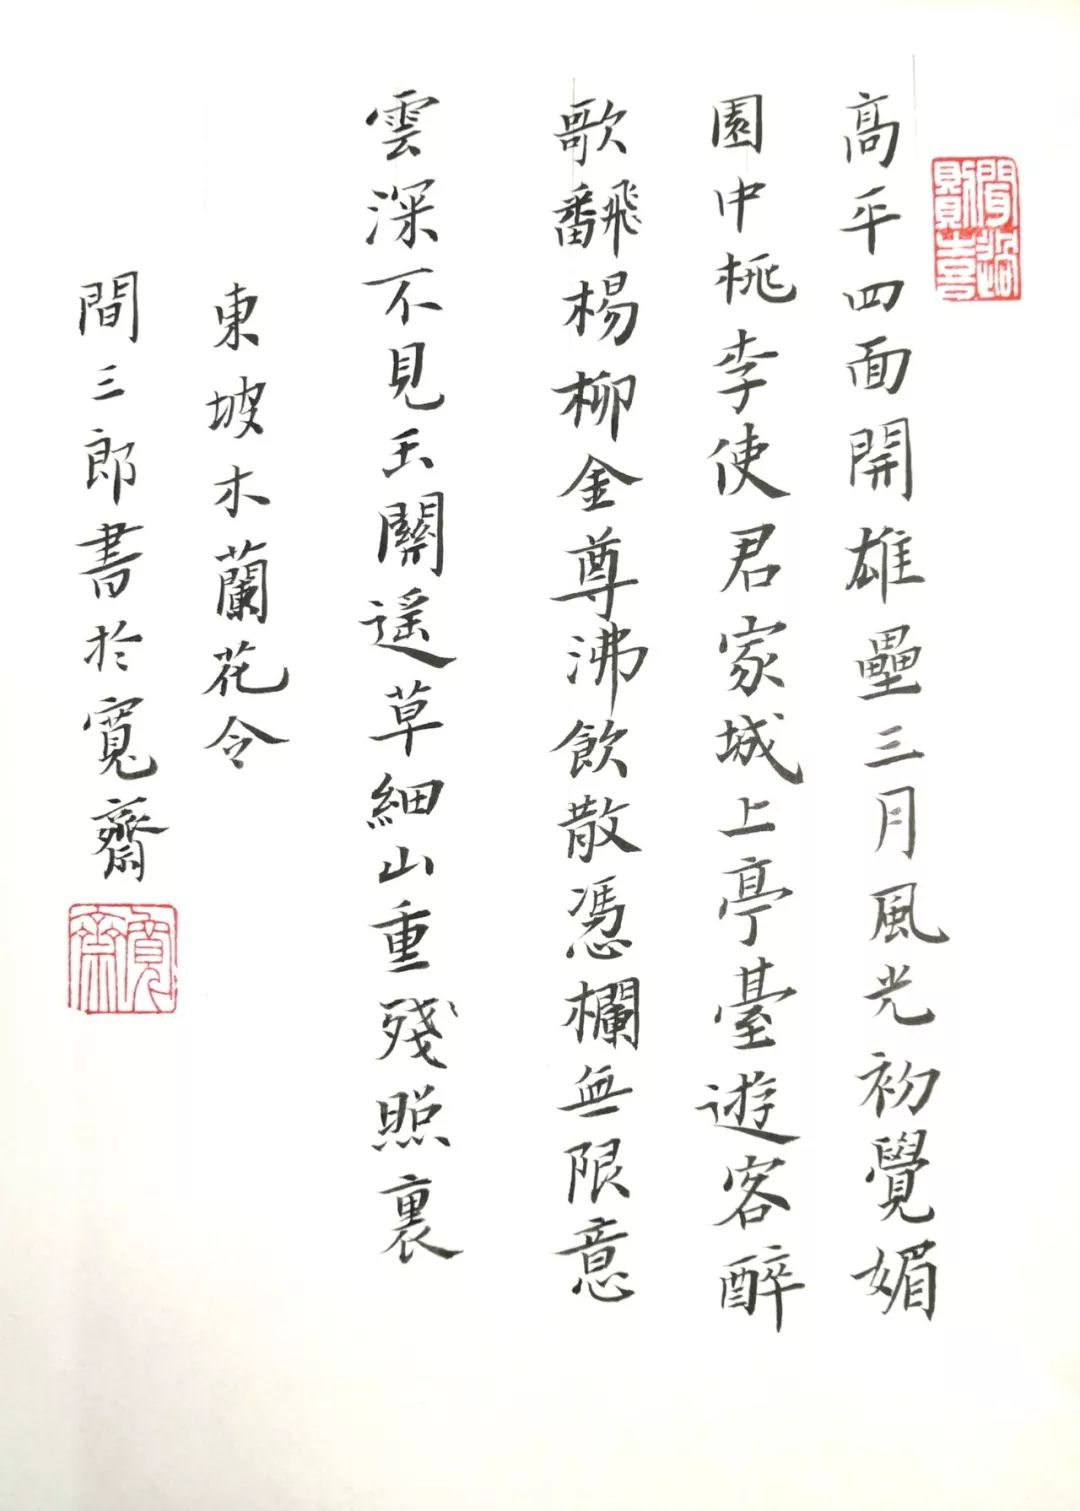 高平四面開雄壘三月風光初覺媚
園中桃李使君家城上亭臺遊客醉
歌飜楊柳金尊沸飲散憑欄無限意
雲深不見玉關遥草細山重殘照裏
東坡木蘭花令
間三郎書於寬齋
寬齋